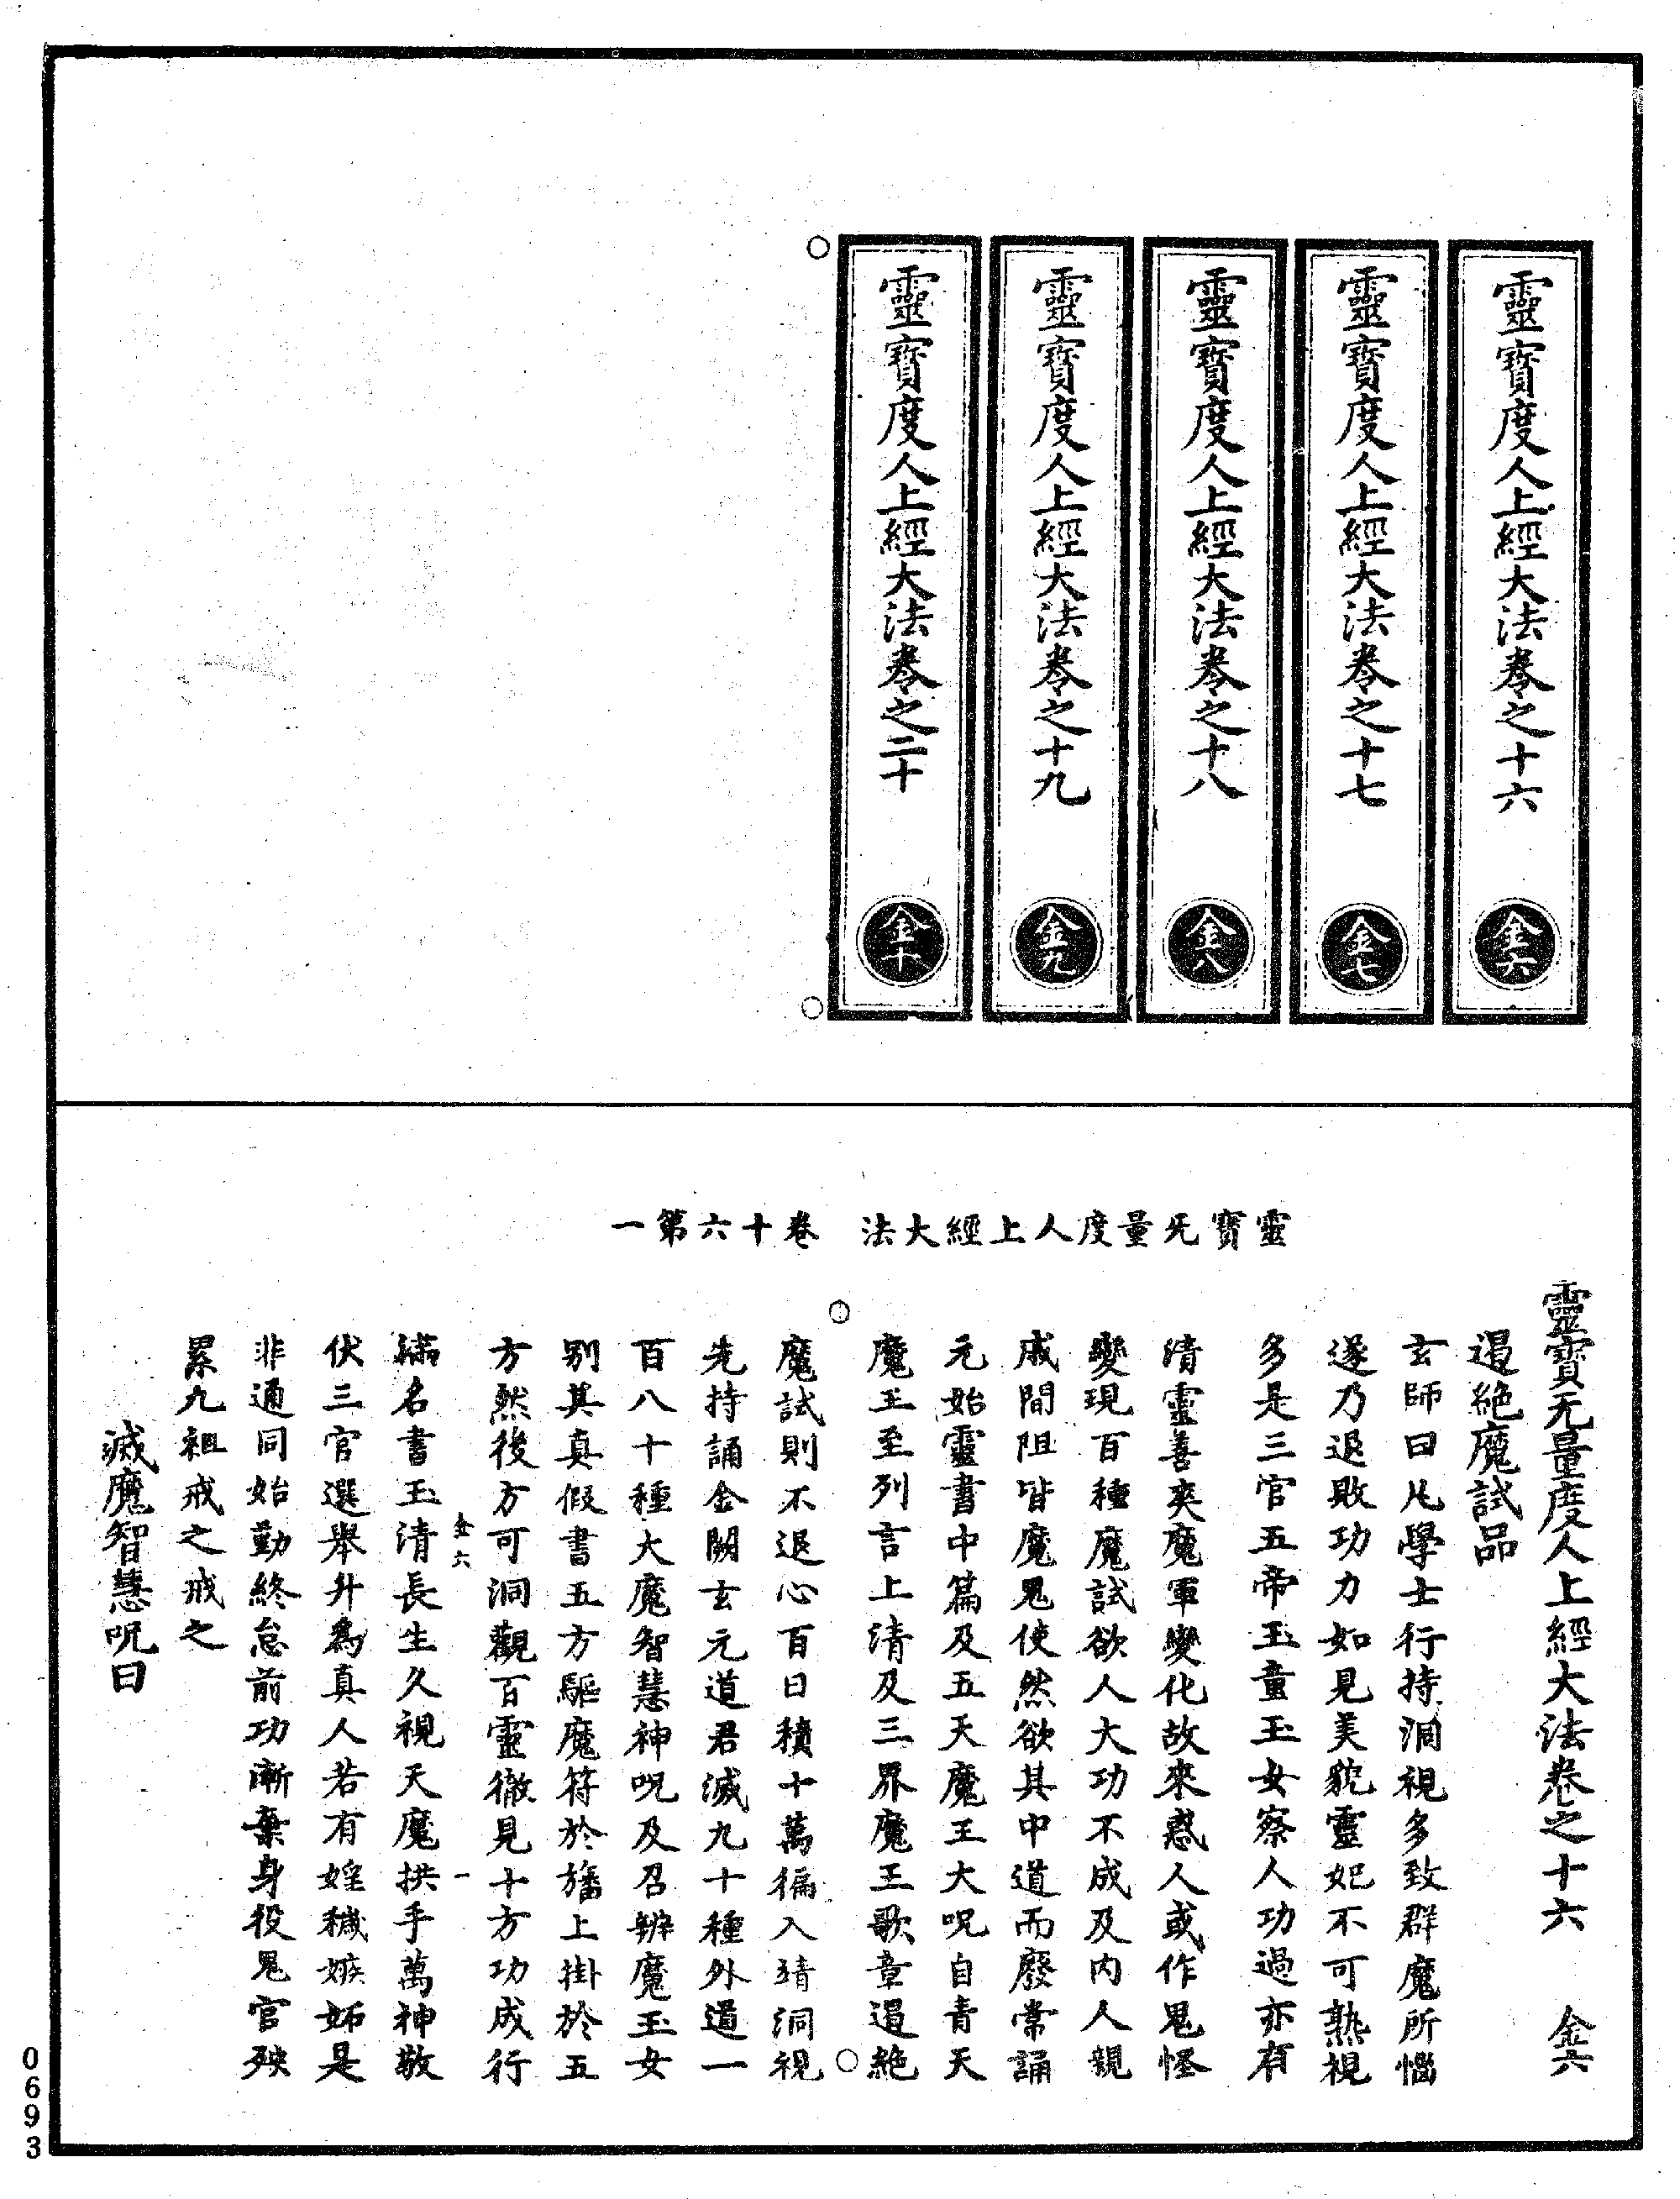 靈寶度人上經大法卷之十六
金六
靈寶度人上經大法卷之十七
金七
靈寶度人上經大法卷之十八
金八
靈寶度人上經大法卷之十九
金九
靈寶度人上經大法卷之二十
金十
靈寶无量度人上經大法 卷十六第一
靈寶无量度人上經大法卷之十六 金六
遏絕魔試品
玄師曰凡學士行持洞視多致群魔所惱
遂乃退敗功力如見美貌靈妃不可熟視
多是三官五帝玉童玉女察人功過亦有
清靈善爽魔軍變化故來惑人或作鬼怪
變現百種魔試欲人大功不成及內人親
戚間阻皆魔鬼使然欲其中道而廢常誦
元始靈書中篇及五天魔王大呪自青天
魔王至列言上清及三界魔王歌章遏絕
魔試則不退心百日積十萬徧入靖洞視
先持誦金闕玄元道君滅九十種外道一
百八十種大魔智慧神呪及召辨魔玉女
別其真假書五方驅魔符於旛上掛於五
方然後方可洞觀百靈徹見十方功成行
金六 一
滿名書玉清長生久視天魔拱手萬神敬
伏三官選舉升為真人若有婬穢嫉妬是
非通同始勤終怠前功漸棄身役鬼官殃
累九祖戒之戒之
滅魔智慧呪曰
0693